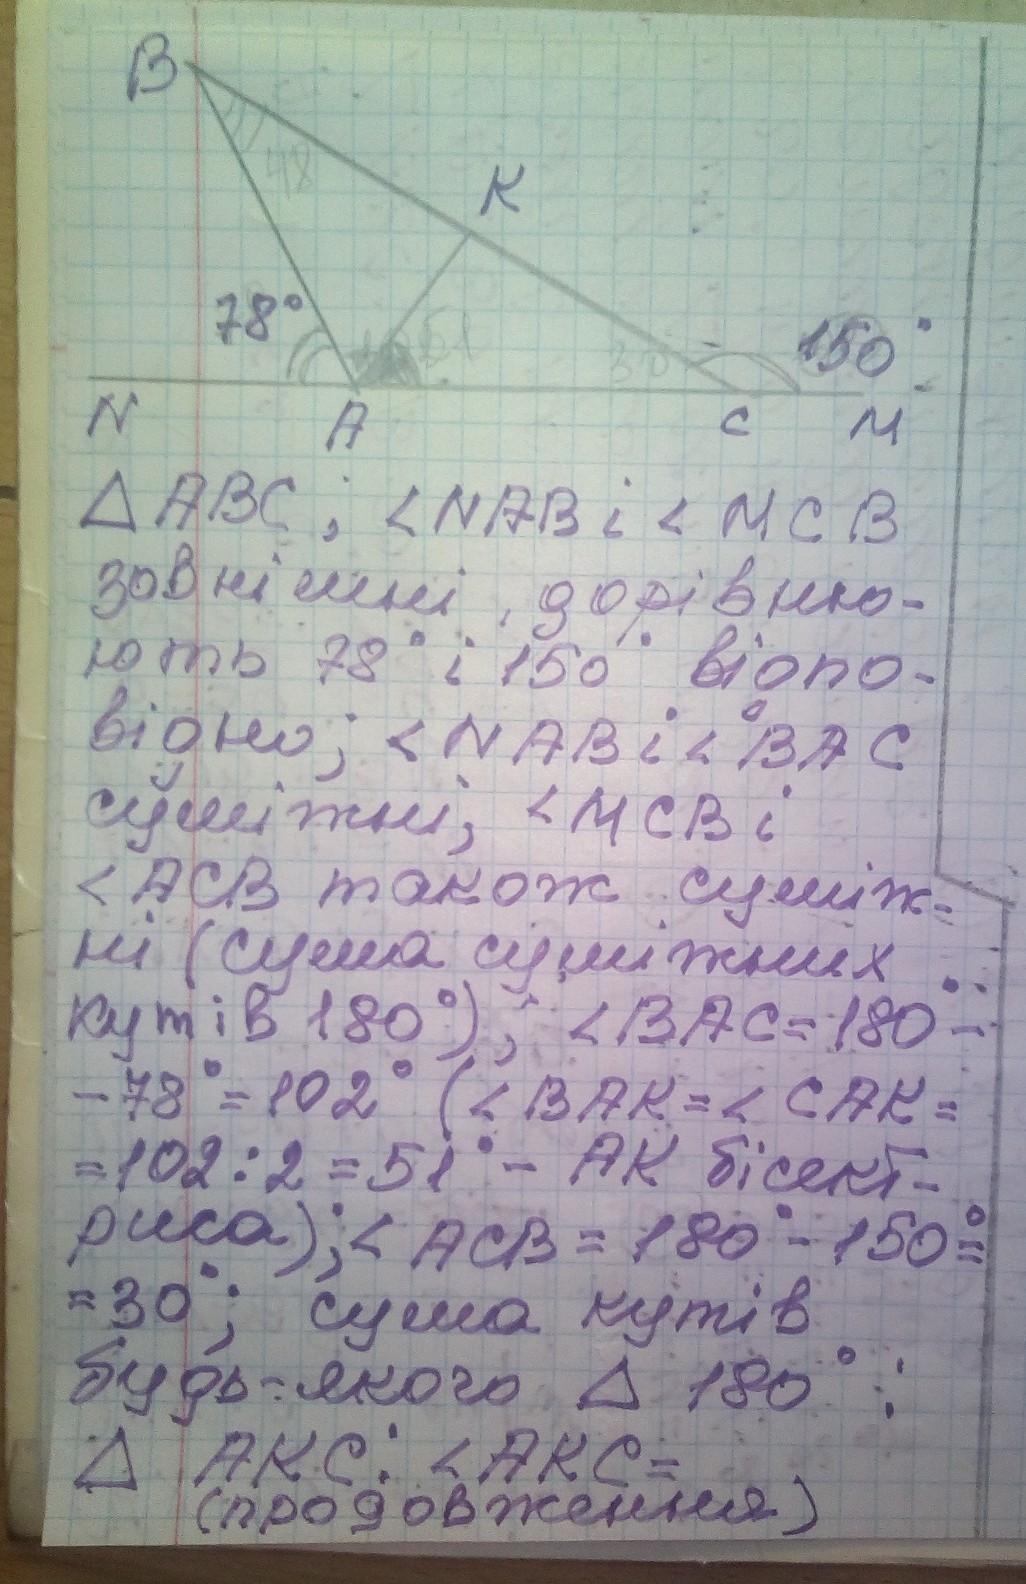 B
48
K
78°
51
30
150°
N
A
C
M
△ ABC; <NAB і < MCB
зовнішні, дорівню-
ють 78° і 150° відпо-
відно; <NAB і < BAC
суміжні; <MCB і
<ACB також суміж-
ні (сума суміжних
кутів 180°); <BAC=180°-
-78°=102° (<BAK=<CAK=
=102:2=51° - AK бісект-
риса); < ACB = 180°-150°=
=30°; сума кутів
будь-якого △ 180°:
△ AKC: <AKC=
(продовження)